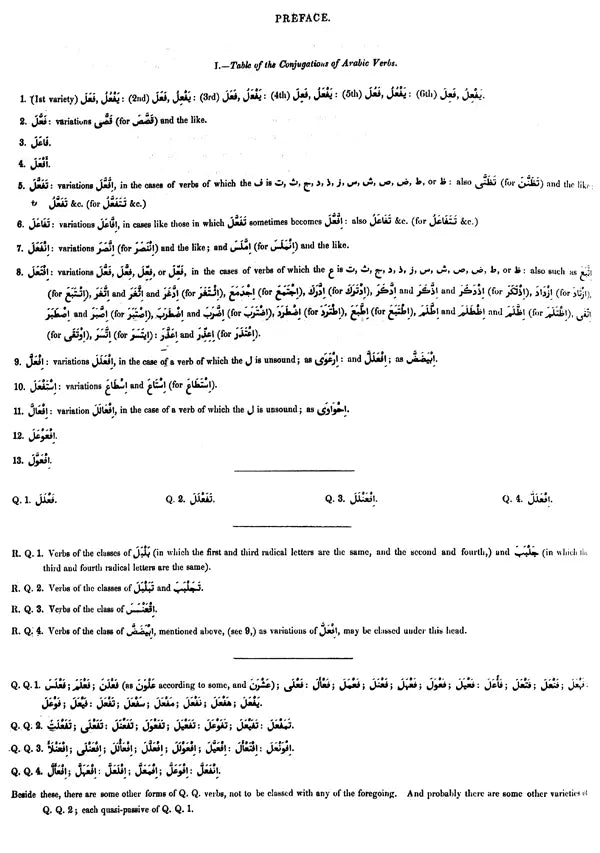 PREFACE.
I.—Table of the Conjugations of Arabic Verbs.
1. (1st variety) فَعَلَ, يَفْعُلُ: (2nd) فَعَلَ, يَفْعِلُ: (3rd) فَعَلَ, يَفْعَلُ: (4th) فَعِلَ, يَفْعَلُ: (5th) فَعُلَ, يَفْعُلُ: (6th) فَعِلَ, يَفْعِلُ.
2. فَعَّلَ: variations قَصَّى (for قَصَّصَ) and the like.
3. فَاعَلَ.
4. أَفْعَلَ.
5. تَفَعَّلَ: variations اِفَّعَّلَ, in the cases of verbs of which the ف is ت, ث, ج, د, ذ, ز, س, ش, ص, ض, ط, or ظ: also تَظَنَّى (for تَظَنَّنَ) and the like:
تَفَعَّلُ &c. (for تَتَفَعَّلُ &c.)
6. تَفَاعَلَ: variations اِفَّاعَلَ, in cases like those in which تَفَعَّلَ sometimes becomes اِفَّعَّلَ: also تَفَاعَلُ &c. (for تَتَفَاعَلُ &c.)
7. اِنْفَعَلَ: variations اِنَّصَرَ (for اِنْنَصَرَ) and the like; and اِمَّلَسَ (for اِنْمَلَسَ) and the like.
8. اِفْتَعَلَ: variations فَعَّلَ, فِعَّلَ, or in the cases of verbs of which the ع is ت, ث, ج, د, ذ, ز, س, ش, ص, ض, ط, or ظ: also such as اِتَّبَعَ
(for اِتْتَبَعَ), اِثَّغَرَ and اِتَّغَرَ and اِدَّغَرَ (for اِثْتَغَرَ), اِجْدَمَعَ (for اِجْتَمَعَ), اِدَّرَكَ (for اِدْتَرَكَ), اِذَّكَرَ and اِدَّكَرَ and اِذْدَكَرَ (for اِذْتَكَرَ), اِزْدَادَ (for اِزْتَادَ),
اِضْطَرَبَ and اِضَّرَبَ (for اِضْتَرَبَ), اِطَّرَدَ (for اِطْتَرَدَ), اِطَّبَعَ (for اِطْتَبَعَ), اِظْطَلَمَ and اِطَّلَمَ and اِظَّلَمَ (for اِظْتَلَمَ), اِتَّقَى
(for اِوْتَقَى), اِتَّسَرَ (for اِيتَسَرَ): and اِعِذَّرَ and (for اِعْتَذَرَ).
9. اِفْعَلَّ: variations اِفْعَلَلَ, in the case of a verb of which the ل is unsound; as اِرْعَوَى: and اِفْعَلَلَّ; as اِبْيَضَضَّ.
10. اِسْتَفْعَلَ: variations اِسْطَاعَ and اِسْتَاعَ (for اِسْتَطَاعَ).
11. اِفْعَالَّ: variation اِفْعَالَلَ, in the case of a verb of which the ل is unsound; as اِحْوَاوَى.
12. اِفْعَوْعَلَ.
13. اِفْعَوَّلَ.
Q. 1. فَعْلَلَ. Q. 2. تَفَعْلَلَ. Q. 3. اِفْعَنْلَلَ. Q. 4. اِفْعَلَلَّ.
R. Q. 1. Verbs of the classes of بَلْبَلَ (in which the first and third radical letters are the same, and the second and fourth,) and جَلْبَبَ (in which the
third and fourth radical letters are the same).
R. Q. 2. Verbs of the classes of تَبَلْبَلَ and تَجَلْبَبَ.
R. Q. 3. Verbs of the class of اِقْعَنْسَسَ.
R. Q. 4. Verbs of the class of اِبْيَضَضَّ, mentioned above, (see 9,) as variations of اِفْعَلَّ, may be classed under this head.
Q. Q. 1. فَعْلَسَ; فَعْلَمَ; فَعْلَنَ (as عَلْوَنَ according to some, and عَشْرَنَ); فَعْلَى; فَعْأَلَ; فَعْهَلَ; فَعْنَلَ; فَعْوَلَ; فَعْيَلَ; فَأْعَلَ; فَتْعَلَ; فَنْعَلَ;
فَوْعَلَ; فَيْعَلَ; تَفْعَلَ; سَفْعَلَ; مَفْعَلَ; نَفْعَلَ; هَفْعَلَ; يَفْعَلَ.
Q. Q. 2. تَفَعْلَتَ; تَفَعْلَى; تَفَعْوَلَ; تَفَعْيَلَ; تَفَوْعَلَ; تَفَيْعَلَ; تَمَفْعَلَ.
Q. Q. 3. اِفْعَنْلَأَ; اِفْعَنْلَى; اِفْعَأْلَلَ; اِفْعَوْلَلَ; اِفْعَيَّلَ; اِفْوَنْعَلَ.
Q. Q. 4. اِفْعَأَلَّ; اِفْعَهَلَّ; اِفْلَعَلَّ; اِفْمَعَلَّ; اِفْوَعَلَّ; اِنْفَعَلَّ.
Beside these, there are some other forms of Q. Q. verbs, not to be classed with any of the foregoing. And probably there are some other varieties of
Q. Q. 2; each quasi-passive of Q. Q. 1.